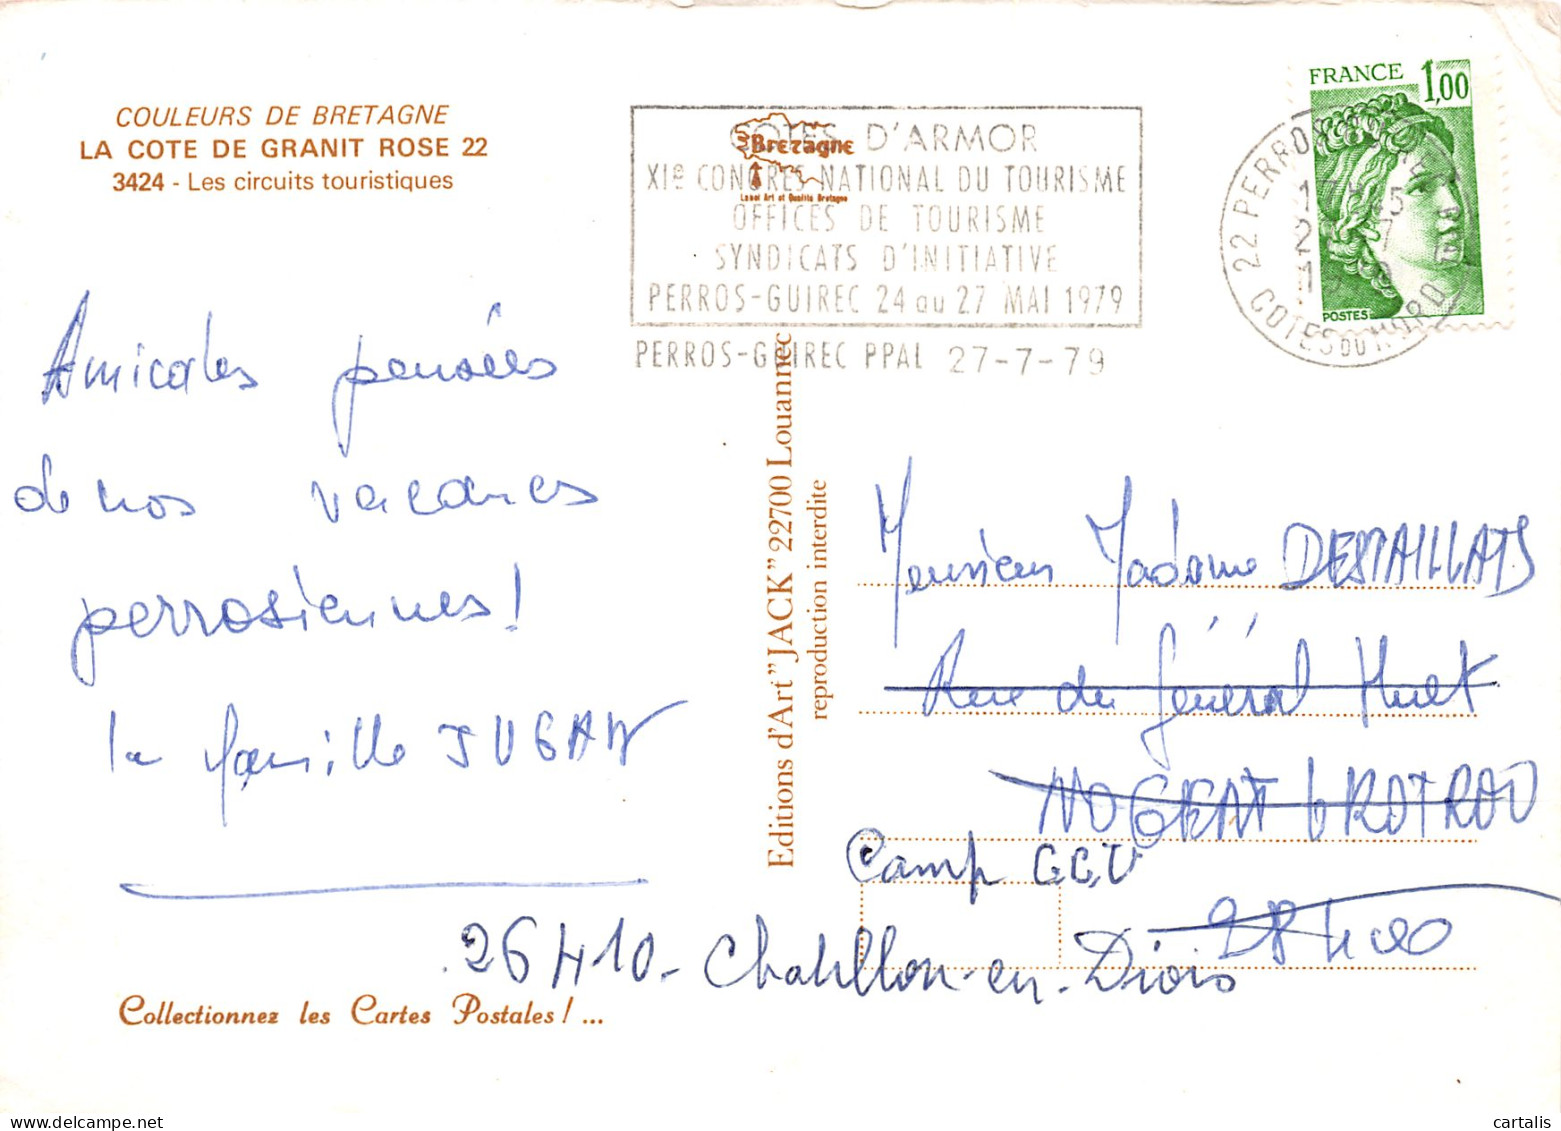 COULEURS DE BRETAGNE
LA COTE DE GRANIT ROSE 22
3424 - Les circuits touristiques
Bretagne
Label Art et Qualité Bretagne
COTES D'ARMOR
XIe CONGRES NATIONAL DU TOURISME
OFFICES DE TOURISME
SYNDICATS D'INITIATIVE
PERROS-GUIREC 24 au 27 MAI 1979
PERROS-GUIREC PPAL 27-7-79
FRANCE 1,00
POSTES
22 PERROS
COTES DU NORD
Amicales pensées
de nos vacances
perrosiennes !
la famille JUGAN
Collectionnez les Cartes Postales ! ...
Editions d'Art "JACK" 22700 Louannec
reproduction interdite
Monsieur Madame DESTAILLATS
Rue du Général Huet
NOGENT LROTROU
Camp G.C.U
28400
26410 - Chatillon-en-Diois
cartalis
www.delcampe.net